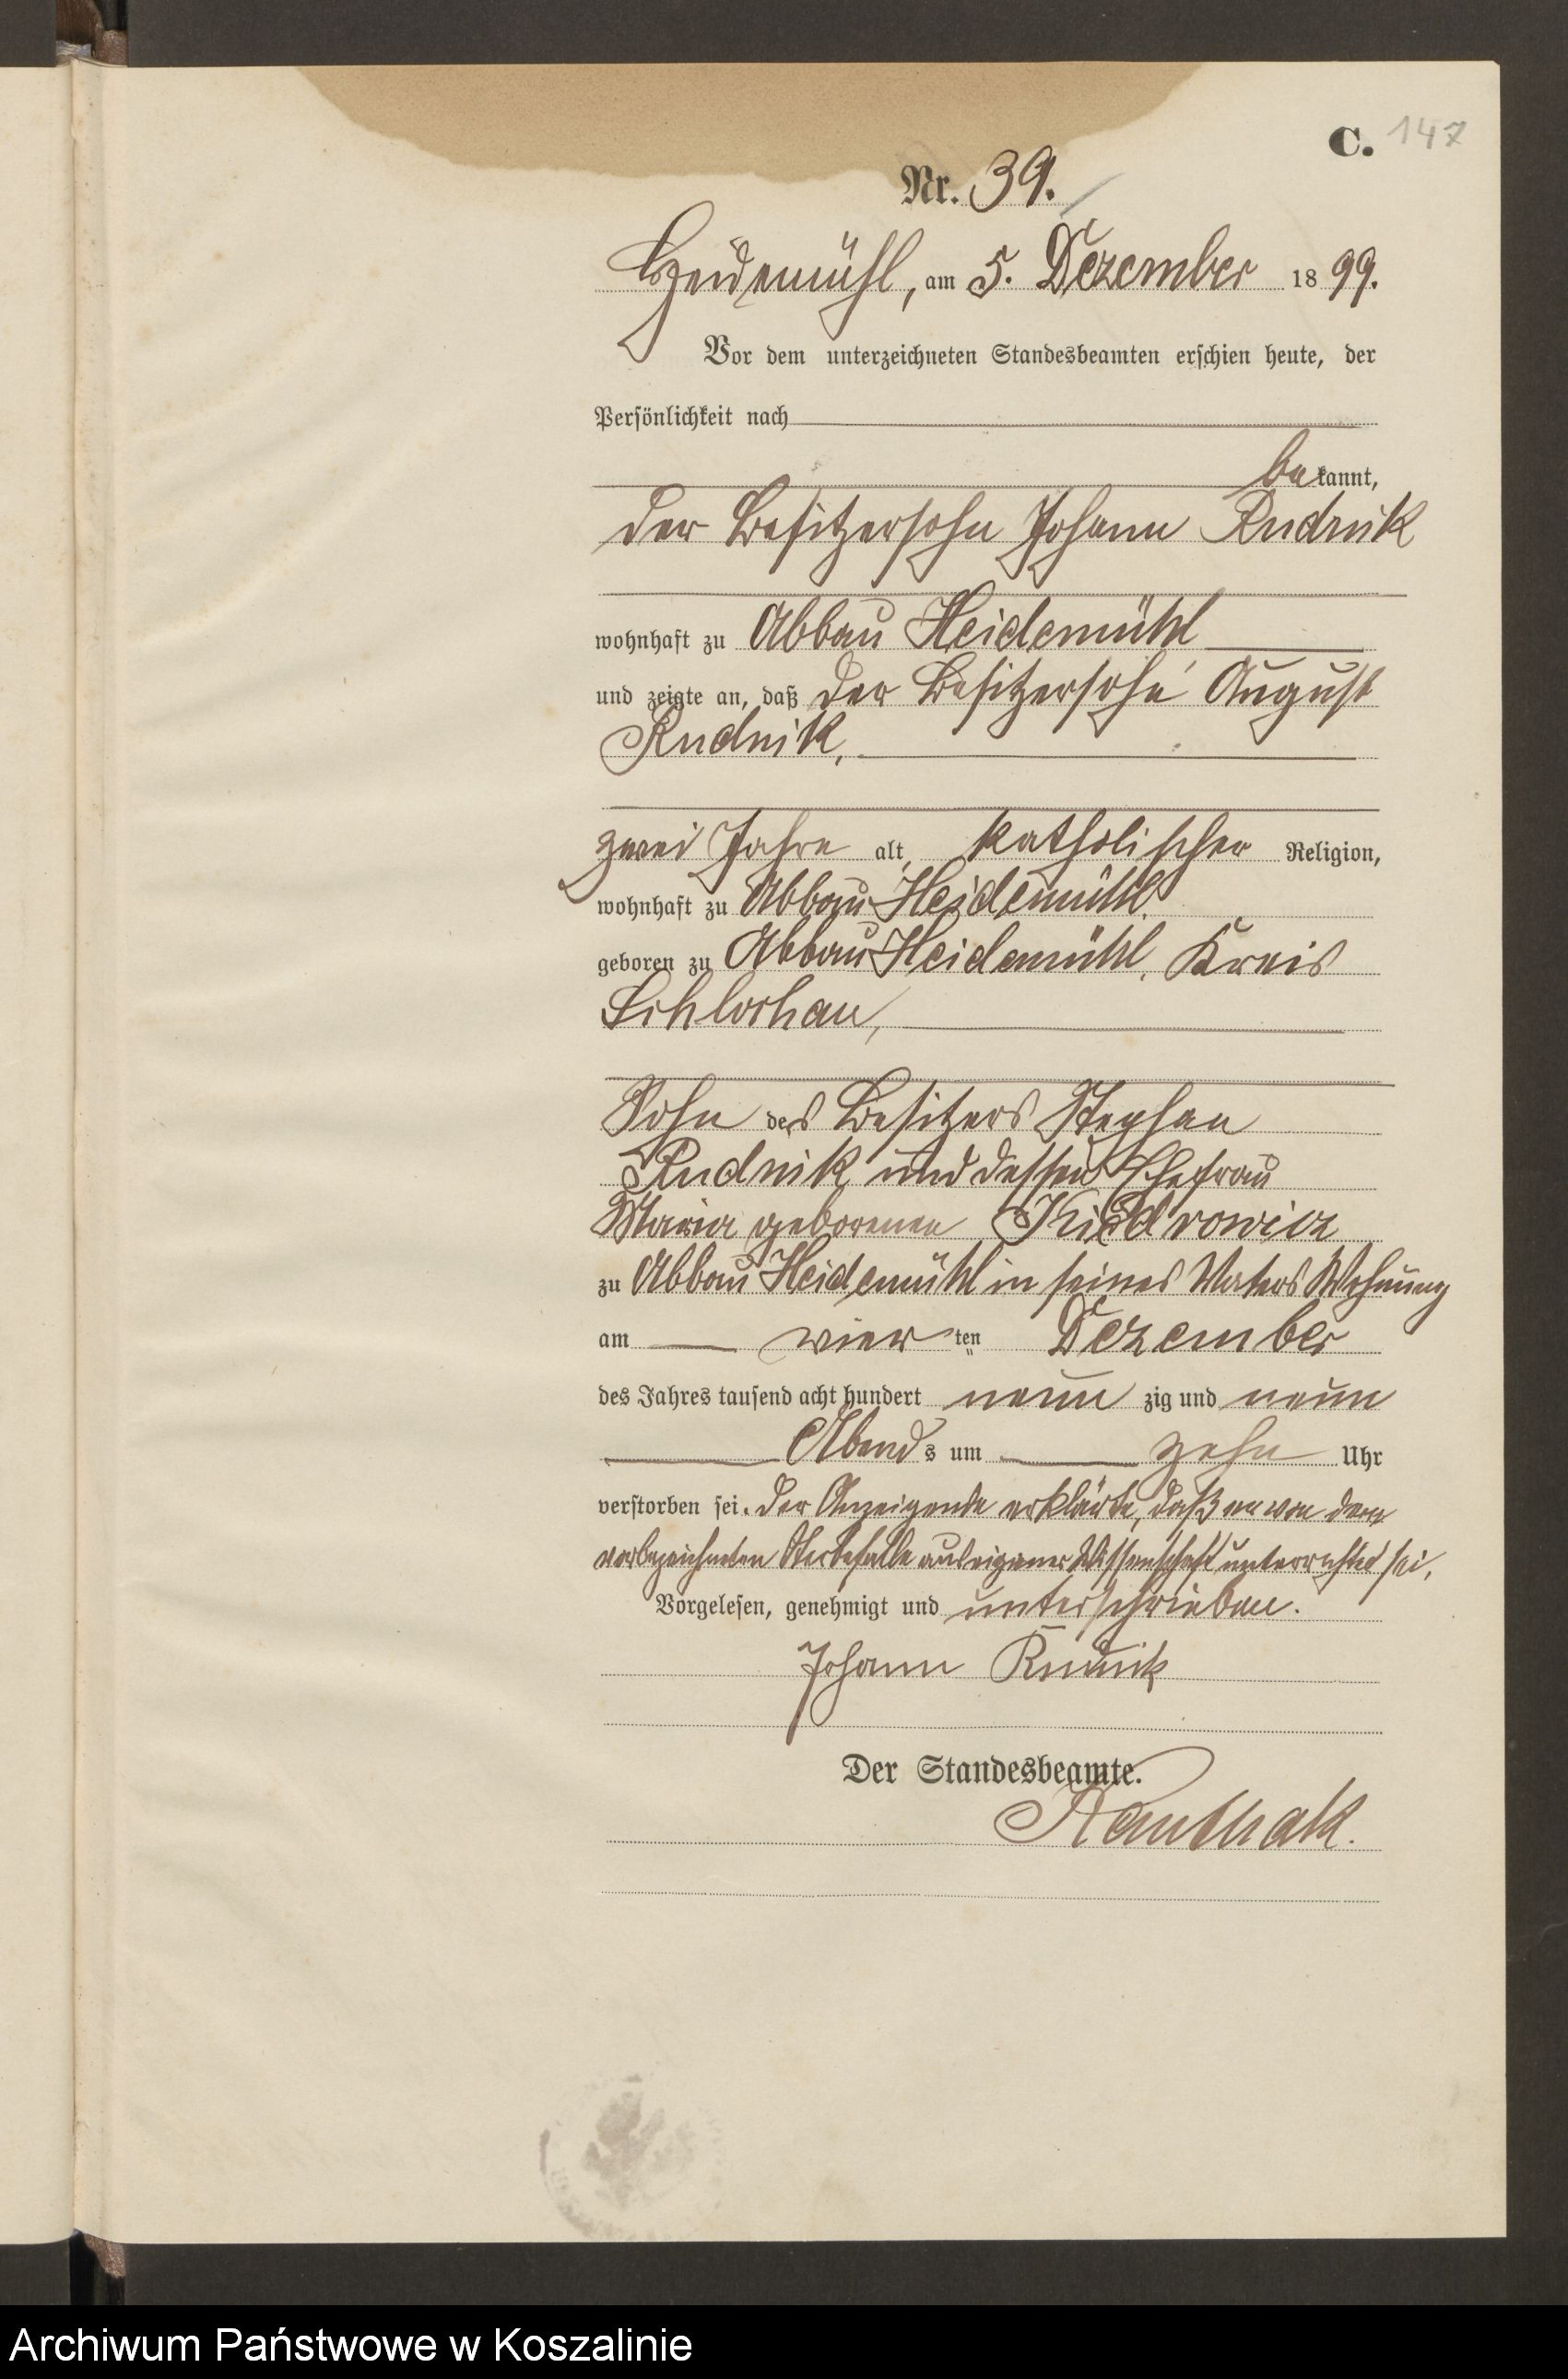 C. 147
Nr. 39.
Heidemühl, am 5. Dezember 1899.
Vor dem unterzeichneten Standesbeamten erschien heute, der
Persönlichkeit nach
bekannt,
der Besitzersohn Johann Rudnik
wohnhaft zu Abbau Heidemühl
und zeigte an, daß der Besitzersohn August
Rudnik,
zwei Jahre alt, katholischer Religion,
wohnhaft zu Abbau Heidemühl,
geboren zu Abbau Heidemühl, Kreis
Schlochau,
Sohn des Besitzers Stephan
Rudnik und dessen Ehefrau
Maria geborenen Kiedrowicz
zu Abbau Heidemühl in seines Vaters Wohnung
am vierten Dezember
des Jahres tausend acht hundert neunzig und neun
Abends um zehn Uhr
verstorben sei. Der Anzeigende erklärte, daß er von dem
vorbezeichneten Sterbefalle aus eigener Wissenschaft unterrichtet sei.
Vorgelesen, genehmigt und unterschrieben.
Johann Rudnik
Der Standesbeamte.
Archiwum Państwowe w Koszalinie